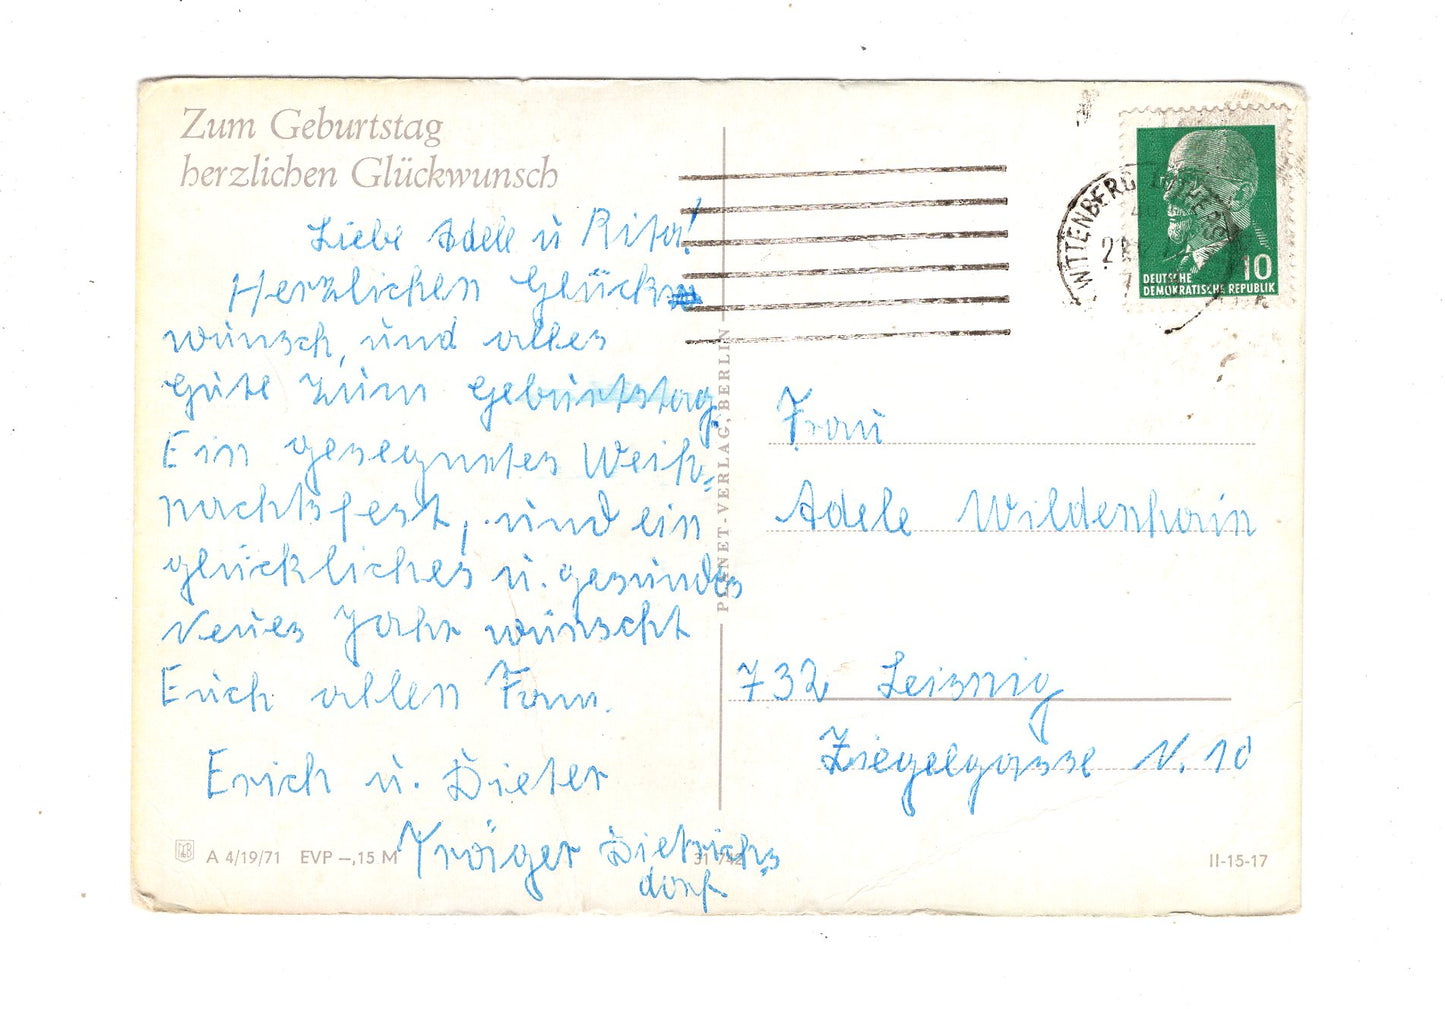 Zum Geburtstag
herzlichen Glückwunsch
Liebe Adele u Rita!
Herzlichen Glück
wunsch, und alles
Gute zum Geburtstag.
Ein gesegnetes Weih=
nachtsfest, und ein
glückliches u. gesundes
Neues Jahr wünscht
Euch allen Fam.
Erich u. Dieter
Dietrichs
dorf
A 4/19/71 EVP –,15 M
31 742
II-15-17
PLANET-VERLAG, BERLIN
WITTENBERG LUTHERST
21
10
DEUTSCHE
DEMOKRATISCHE REPUBLIK
Frau
Adele Wildenhain
732 Leisnig
Ziegelgasse N. 10